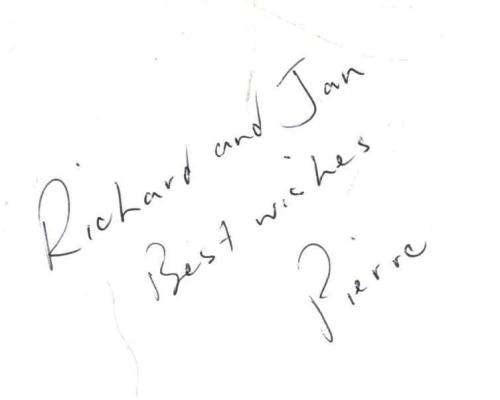 Richard and Jan
Best wishes
Pierre